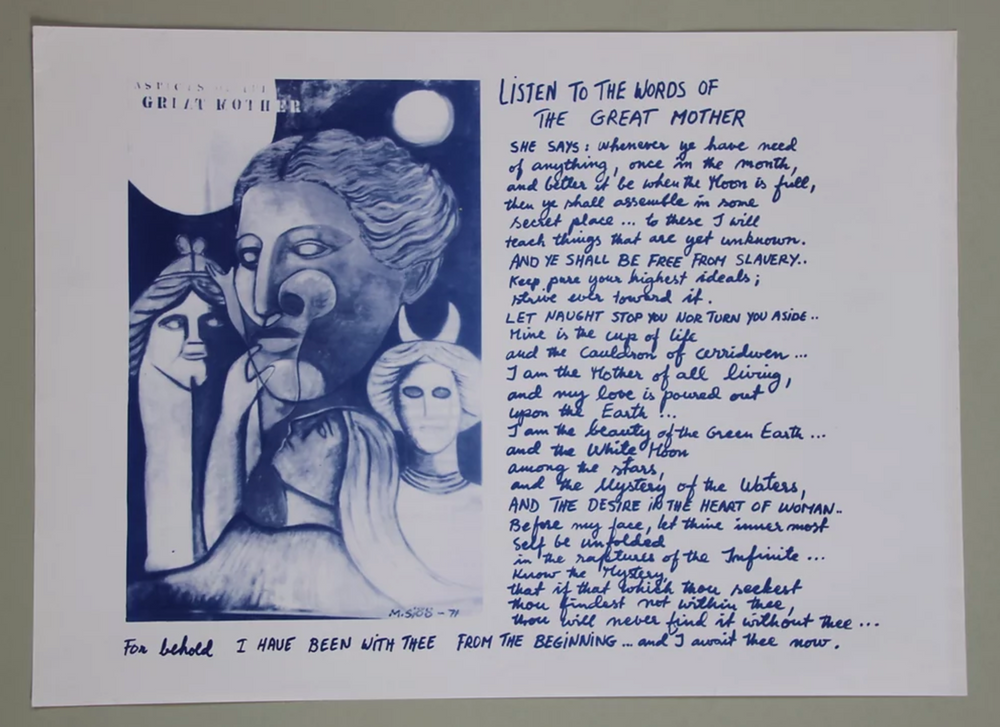 ASPECTS OF THE
GREAT MOTHER
LISTEN TO THE WORDS OF
THE GREAT MOTHER
SHE SAYS: whenever ye have need
of anything, once in the month,
and better it be when the Moon is full,
then ye shall assemble in some
secret place ... to these I will
teach things that are yet unknown.
AND YE SHALL BE FREE FROM SLAVERY..
Keep pure your highest ideals;
strive ever toward it.
LET NAUGHT STOP YOU NOR TURN YOU ASIDE..
Mine is the cup of life
and the Cauldron of Cerridwen ...
I am the Mother of all living,
and my love is poured out
upon the Earth ...
I am the beauty of the Green Earth ...
and the White Moon
among the stars,
and the Mystery of the Waters,
AND THE DESIRE IN THE HEART OF WOMAN..
Before my face, let thine inner most
Self be unfolded
in the raptures of the Infinite ...
Know the Mystery,
that if that which thou seekest
thou findest not within thee,
thou will never find it without thee ...
M. SJÖÖ - 71
For behold I HAVE BEEN WITH THEE FROM THE BEGINNING ... and I await thee now.